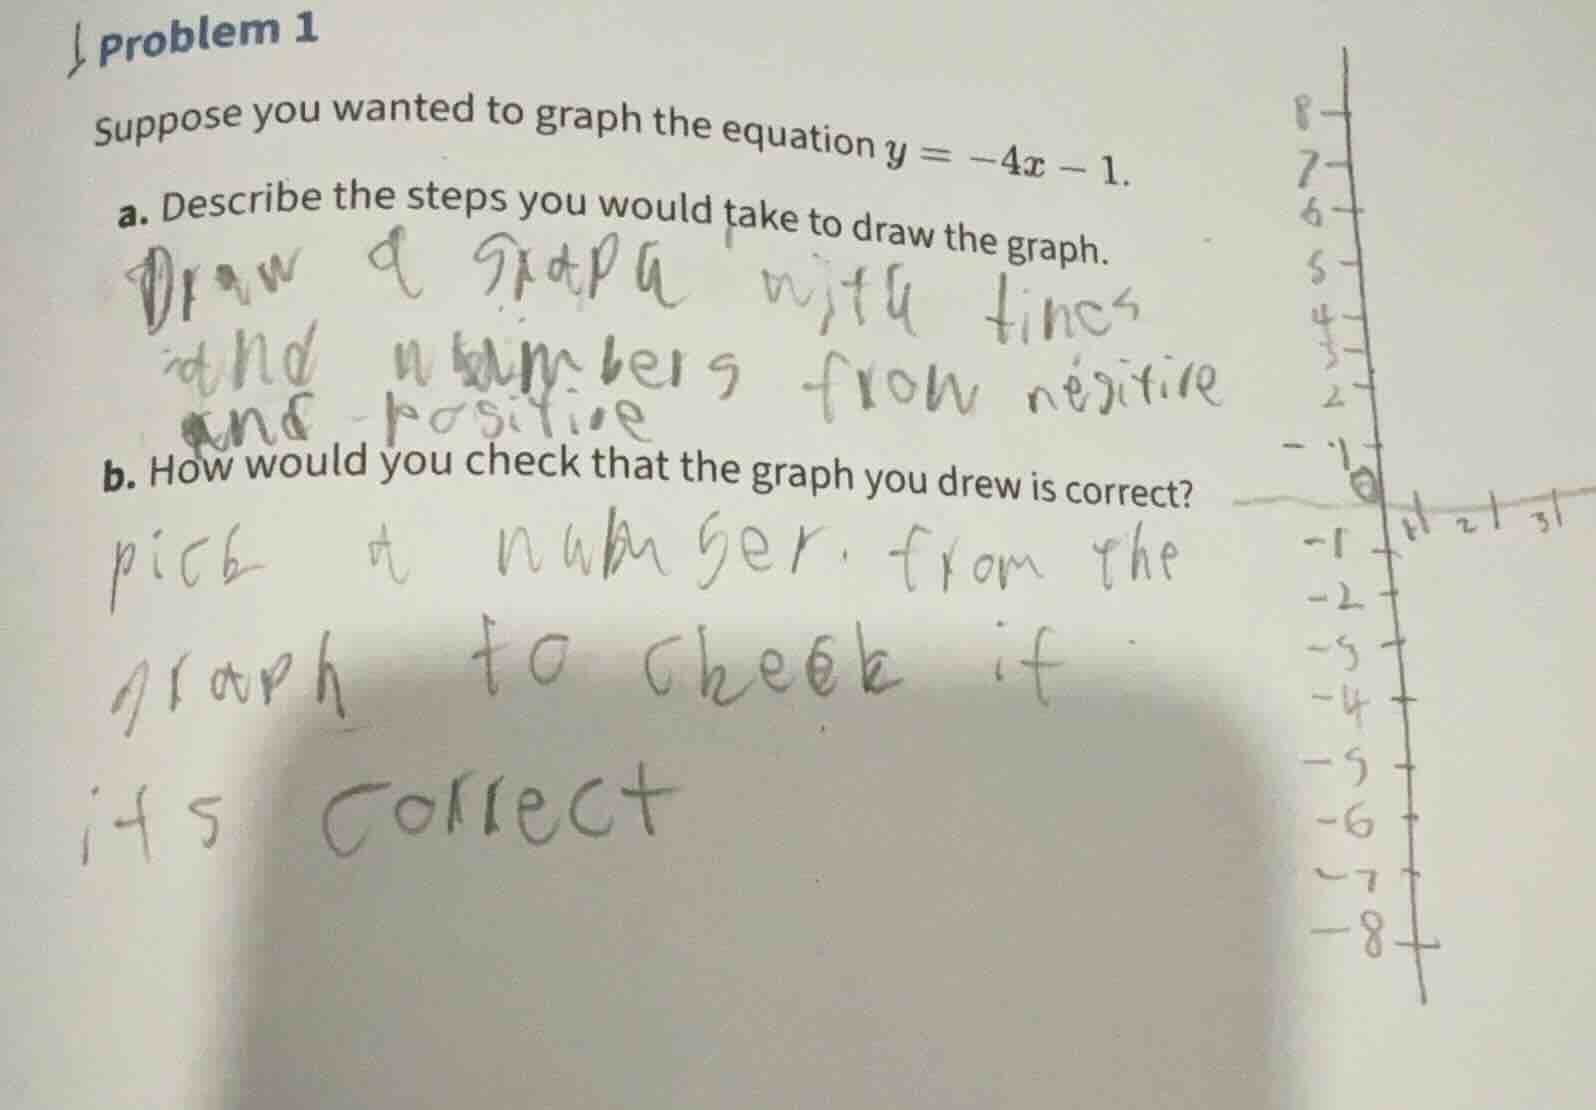 Problem 1
Suppose you wanted to graph the equation y = −4x − 1.
a. Describe the steps you would take to draw the graph.
Draw a graph with lines
and numbers from négitive
and positive
b. How would you check that the graph you drew is correct?
pick a number. from the
graph to check if
its correct
8
7
6
5
4
3
2
- 1
0
1 2 3
-1
-2
-3
-4
-5
-6
-7
-8